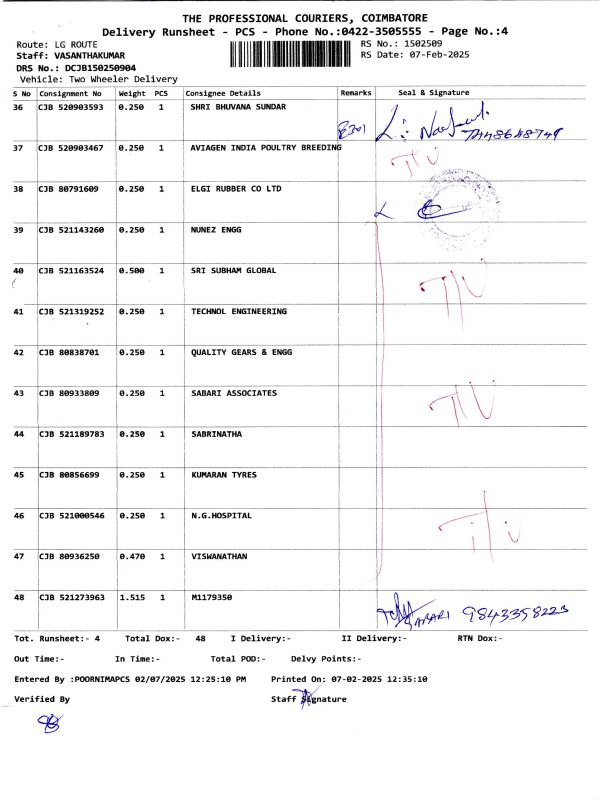 THE PROFESSIONAL COURIERS, COIMBATORE
Delivery Runsheet - PCS - Phone No.:0422-3505555 - Page No.:4
Route: LG ROUTE RS No.: 1502509
Staff: VASANTHAKUMAR RS Date: 07-Feb-2025
DRS No.: DCJB150250904
Vehicle: Two Wheeler Delivery
S No Consignment No Weight PCS Consignee Details Remarks Seal & Signature
36 CJB 520903593 0.250 1 SHRI BHUVANA SUNDAR
37 CJB 520903467 0.250 1 AVIAGEN INDIA POULTRY BREEDING
38 CJB 80791609 0.250 1 ELGI RUBBER CO LTD
39 CJB 521143260 0.250 1 NUNEZ ENGG
40 CJB 521163524 0.500 1 SRI SUBHAM GLOBAL
41 CJB 521319252 0.250 1 TECHNOL ENGINEERING
42 CJB 80838701 0.250 1 QUALITY GEARS & ENGG
43 CJB 80933809 0.250 1 SABARI ASSOCIATES
44 CJB 521189783 0.250 1 SABRINATHA
45 CJB 80856699 0.250 1 KUMARAN TYRES
46 CJB 521000546 0.250 1 N.G.HOSPITAL
47 CJB 80936250 0.470 1 VISWANATHAN
48 CJB 521273963 1.515 1 M1179350 9843358223
Tot. Runsheet:- 4 Total Dox:- 48 I Delivery:- II Delivery:- RTN Dox:-
Out Time:- In Time:- Total POD:- Delvy Points:-
Entered By :POORNIMAPCS 02/07/2025 12:25:10 PM Printed On: 07-02-2025 12:35:10
Verified By Staff Signature